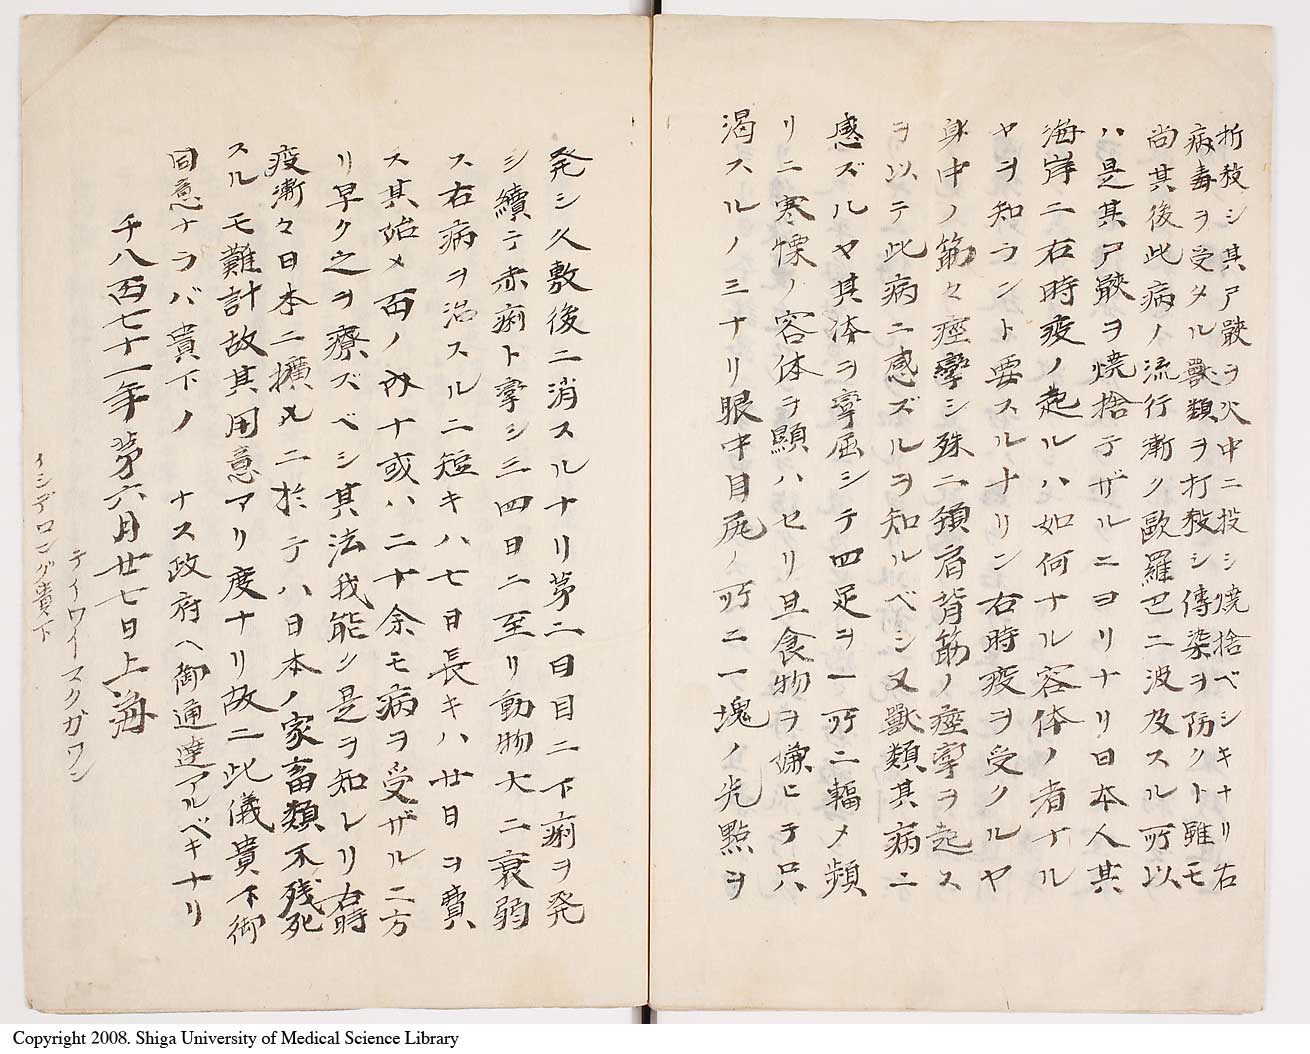 折殺シ其尸骸ヲ火中ニ投シ焼捨ベシキナリ右
病毒ヲ受タル獸類ヲ打殺シ傳染ヲ防クト雖モ
尚其後此病ノ流行漸ク歐羅巴ニ波及スル所以
ハ是其尸骸ヲ焼捨テザルニヨリナリ日本人其
海岸ニ右時疫ノ起ルハ如何ナル容体ノ者ナル
ヤヲ知ラント要スルナリン右時疫ヲ受クルヤ
身中ノ筋々痙攣シ殊ニ頸肩背筋ノ痙攣ヲ起ス
ヲ以テ此病ニ感ズルヲ知ルベシ又獸類其病ニ
感ズルヤ其体ヲ攣屈シテ四足ヲ一所ニ輻メ頻
リニ寒慄ノ容体ヲ顕ハセリ且食物ヲ嫌ヒテ只
渇スルノミナリ眼中目尻ノ所ニ一塊ノ光點ヲ
発シ久敷後ニ消スルナリ第二日目ニ下痢ヲ発
シ續テ赤痢ト変シ三四日ニ至リ動物大ニ衰弱
ス右病ヲ治スルニ短キハ七日長キハ廿日ヲ費
ス其始メ百ノ内十或ハ二十余モ病ヲ受ザル二方
リ早ク之ヲ療ズベシ其法我能ク是ヲ知レリ右時
疫漸々日本ニ擴ルニ於テハ日本ノ家畜類不残死
スルモ難計故其用意アリ度ナリ故ニ此儀貴下御
同意ナラバ貴下ノ ナス政府ヘ御通達アルベキナリ
千八百七十一年第六月廿七日上海
テイワイスクガワン
イシデロング貴下
Copyright 2008. Shiga University of Medical Science Library